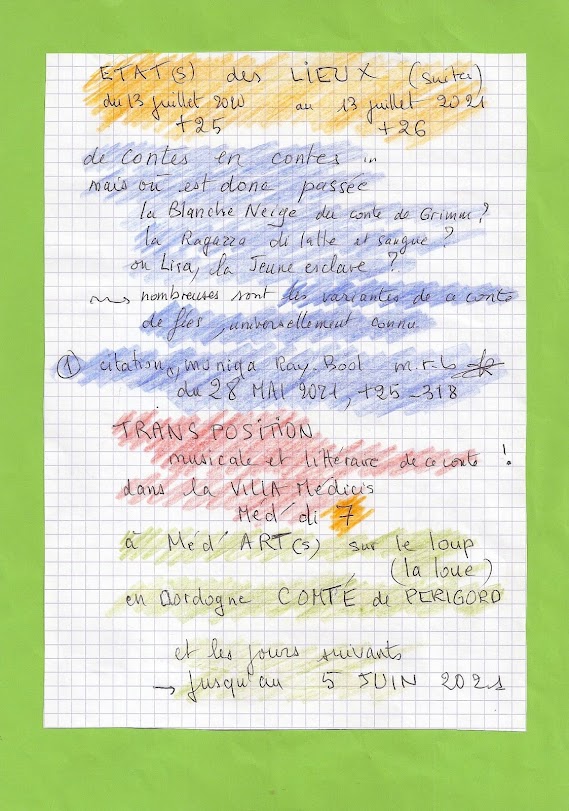 ETAT(S) des LIEUX (suite)
du 13 juillet 2020 au 13 juillet 2021
+25 +26
de contes en contes ...
mais où est donc passée
la Blanche Neige du conte de Grimm ?
la Ragazza di latte et sangue ?
ou Lisa, la Jeune esclave ?
nombreuses sont les variantes de ce conte
de fées, universellement connu
① citation, muniqa Ray. Bool m.r.b
du 28 MAI 2021, +25 -318
TRANSPOSITION
musicale et littéraire de ce conte !
dans la VILLA Médicis
Méd' di 7
à Méd' ART(s) sur le loup
(la loue)
en Dordogne COMTÉ de PERIGORD
et les jours suivants
→ jusqu'au 5 JUIN 2021